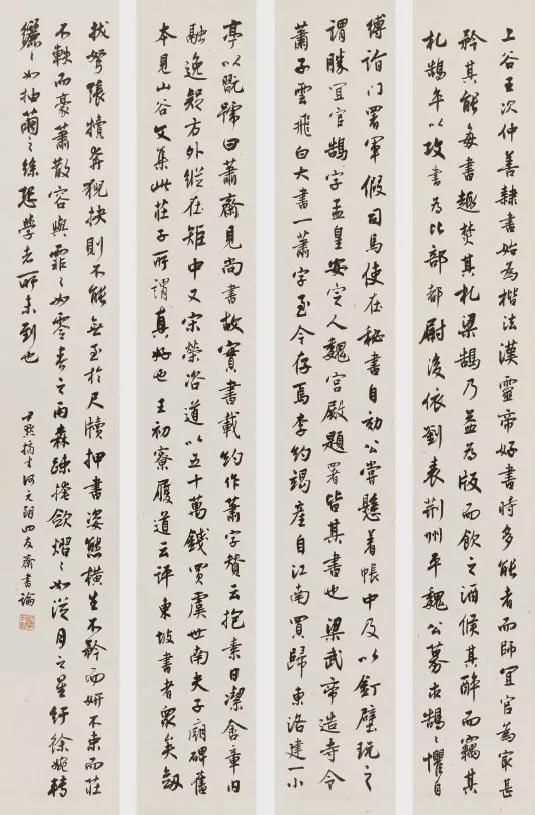 上谷王次仲善隸書始為楷法漢靈帝好書時多能者而師宜官為最甚
矜其能每書輒焚其札梁鵠乃益為版而飲之酒候其醉而竊其
札鵠卒以攻書為比部都尉後依劉表荊州平魏公募求鵠〻懼自
縛詣門署軍假司馬使在秘書自効公嘗懸著帳中及以釘壁玩之
謂勝宜官鵠字孟皇安定人魏宮殿題署皆其書也梁武帝造寺令
蕭子雲飛白大書一蕭字至今存焉李約竭產自江南買歸東洛建一小
亭以貺號曰蕭齋見尚書故實書載約作蕭字贊云抱素日潔含章內
融逸疑方外縱在矩中又宋榮咨道以五十萬錢買虞世南夫子廟碑舊
本見山谷文集此莊子所謂真好也王初寮履道云評東坡書者眾矣劍
拔弩張犢奔猊抉則不能無至於尺牘押書姿態橫生不矜而妍不束而莊
不軼而豪蕭散容與霏〻如零春之雨森疎掩斂熠〻如從月之星紆徐婉轉
纚〻如抽繭之絲恐學者所未到也
尹默摘書何元朗四友齋書論